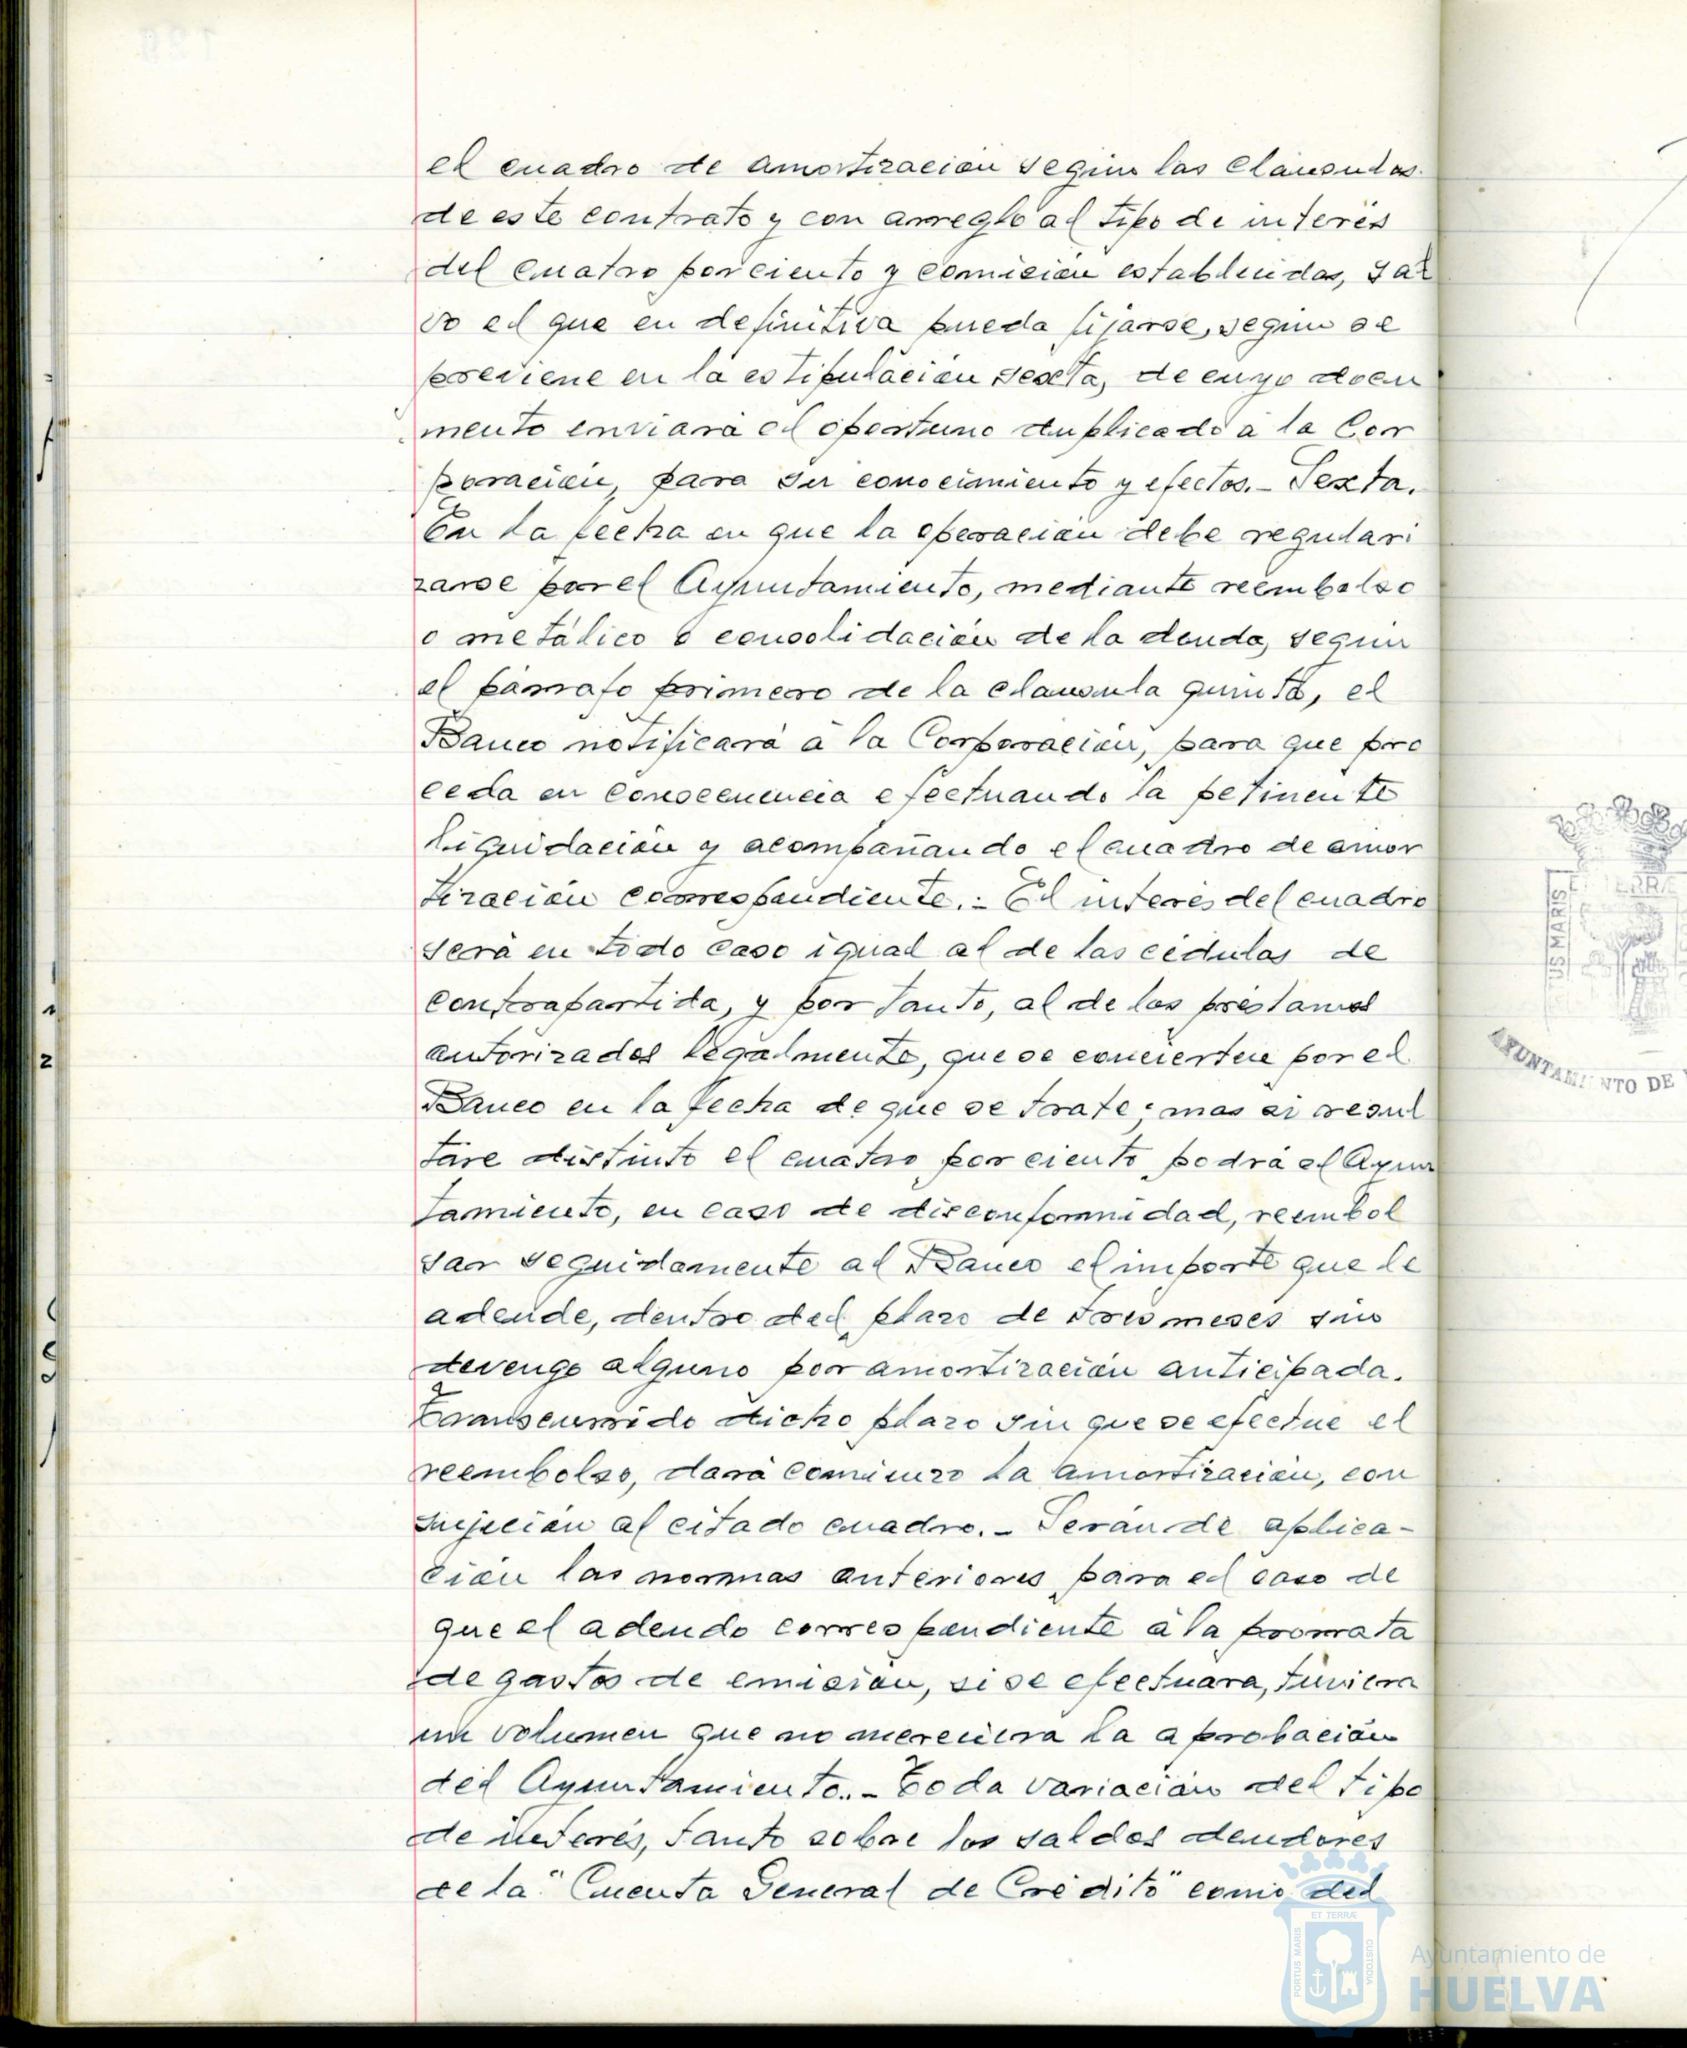 el cuadro de amortización según las cláusulas
de este contrato y con arreglo al tipo de interés
del cuatro por ciento y comisión establecidas, sal
vo el que en definitiva pueda fijarse, según se
previene en la estipulación sexta, de cuyo docu
mento enviará el oportuno duplicado á la Cor
poración, para su conocimiento y efectos.- Sexta.
En la fecha en que la operación debe regulari
zarse por el Ayuntamiento, mediante reembolso
o metálico o consolidación de la deuda, según
el párrafo primero de la clausula quinta, el
Banco notificará á la Corporación, para que pro
ceda en consecuencia efectuando la petinente
liquidación y acompañando el cuadro de amor
tización correspondiente.- El interés del cuadro
será en todo caso igual al de las cédulas de
contrapartida, y por tanto, al de los préstamos
autorizados legalmente, que se concierten por el
Banco en la fecha de que se trate; mas si resul
tare distinto el cuatro por ciento podrá el Ayun
tamiento, en caso de disconformidad, reembol
sar seguidamente al Banco el importe que le
adeude, dentro del plazo de tres meses sin
devengo alguno por amortización anticipada.
Transcurrido dicho plazo sin que se efectue el
reembolso, dará comienzo la amortización, con
sujeción al citado cuadro.- Serán de aplica-
ción las normas anteriores para el caso de
que el adeudo correspondiente á la prorrata
de gastos de emisión, si se efectuara, tuviera
un volumen que no mereciera la aprobación
del Ayuntamiento..- Toda variación del tipo
de interés, tanto sobre los saldos deudores
de la "Cuenta General de Crédito" como del
ET TERRÆ
US MARIS
AYUNTAMIENTO DE
ET TERRÆ
PORTUS MARIS
CUSTODIA
Ayuntamiento de
HUELVA